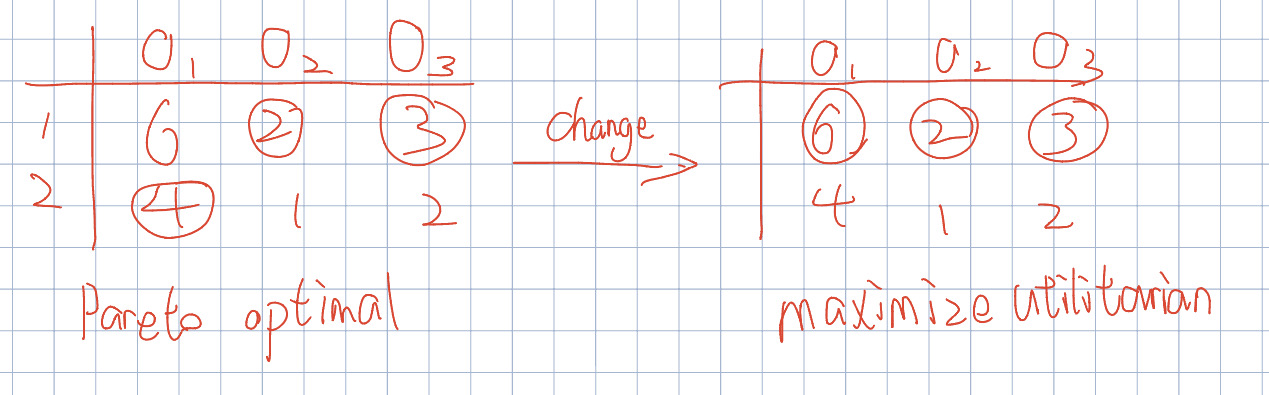 O1 O2 O3
1 6 2 3
2 4 1 2
Pareto optimal
change
O1 O2 O3
6 2 3
4 1 2
maximize utilitarian